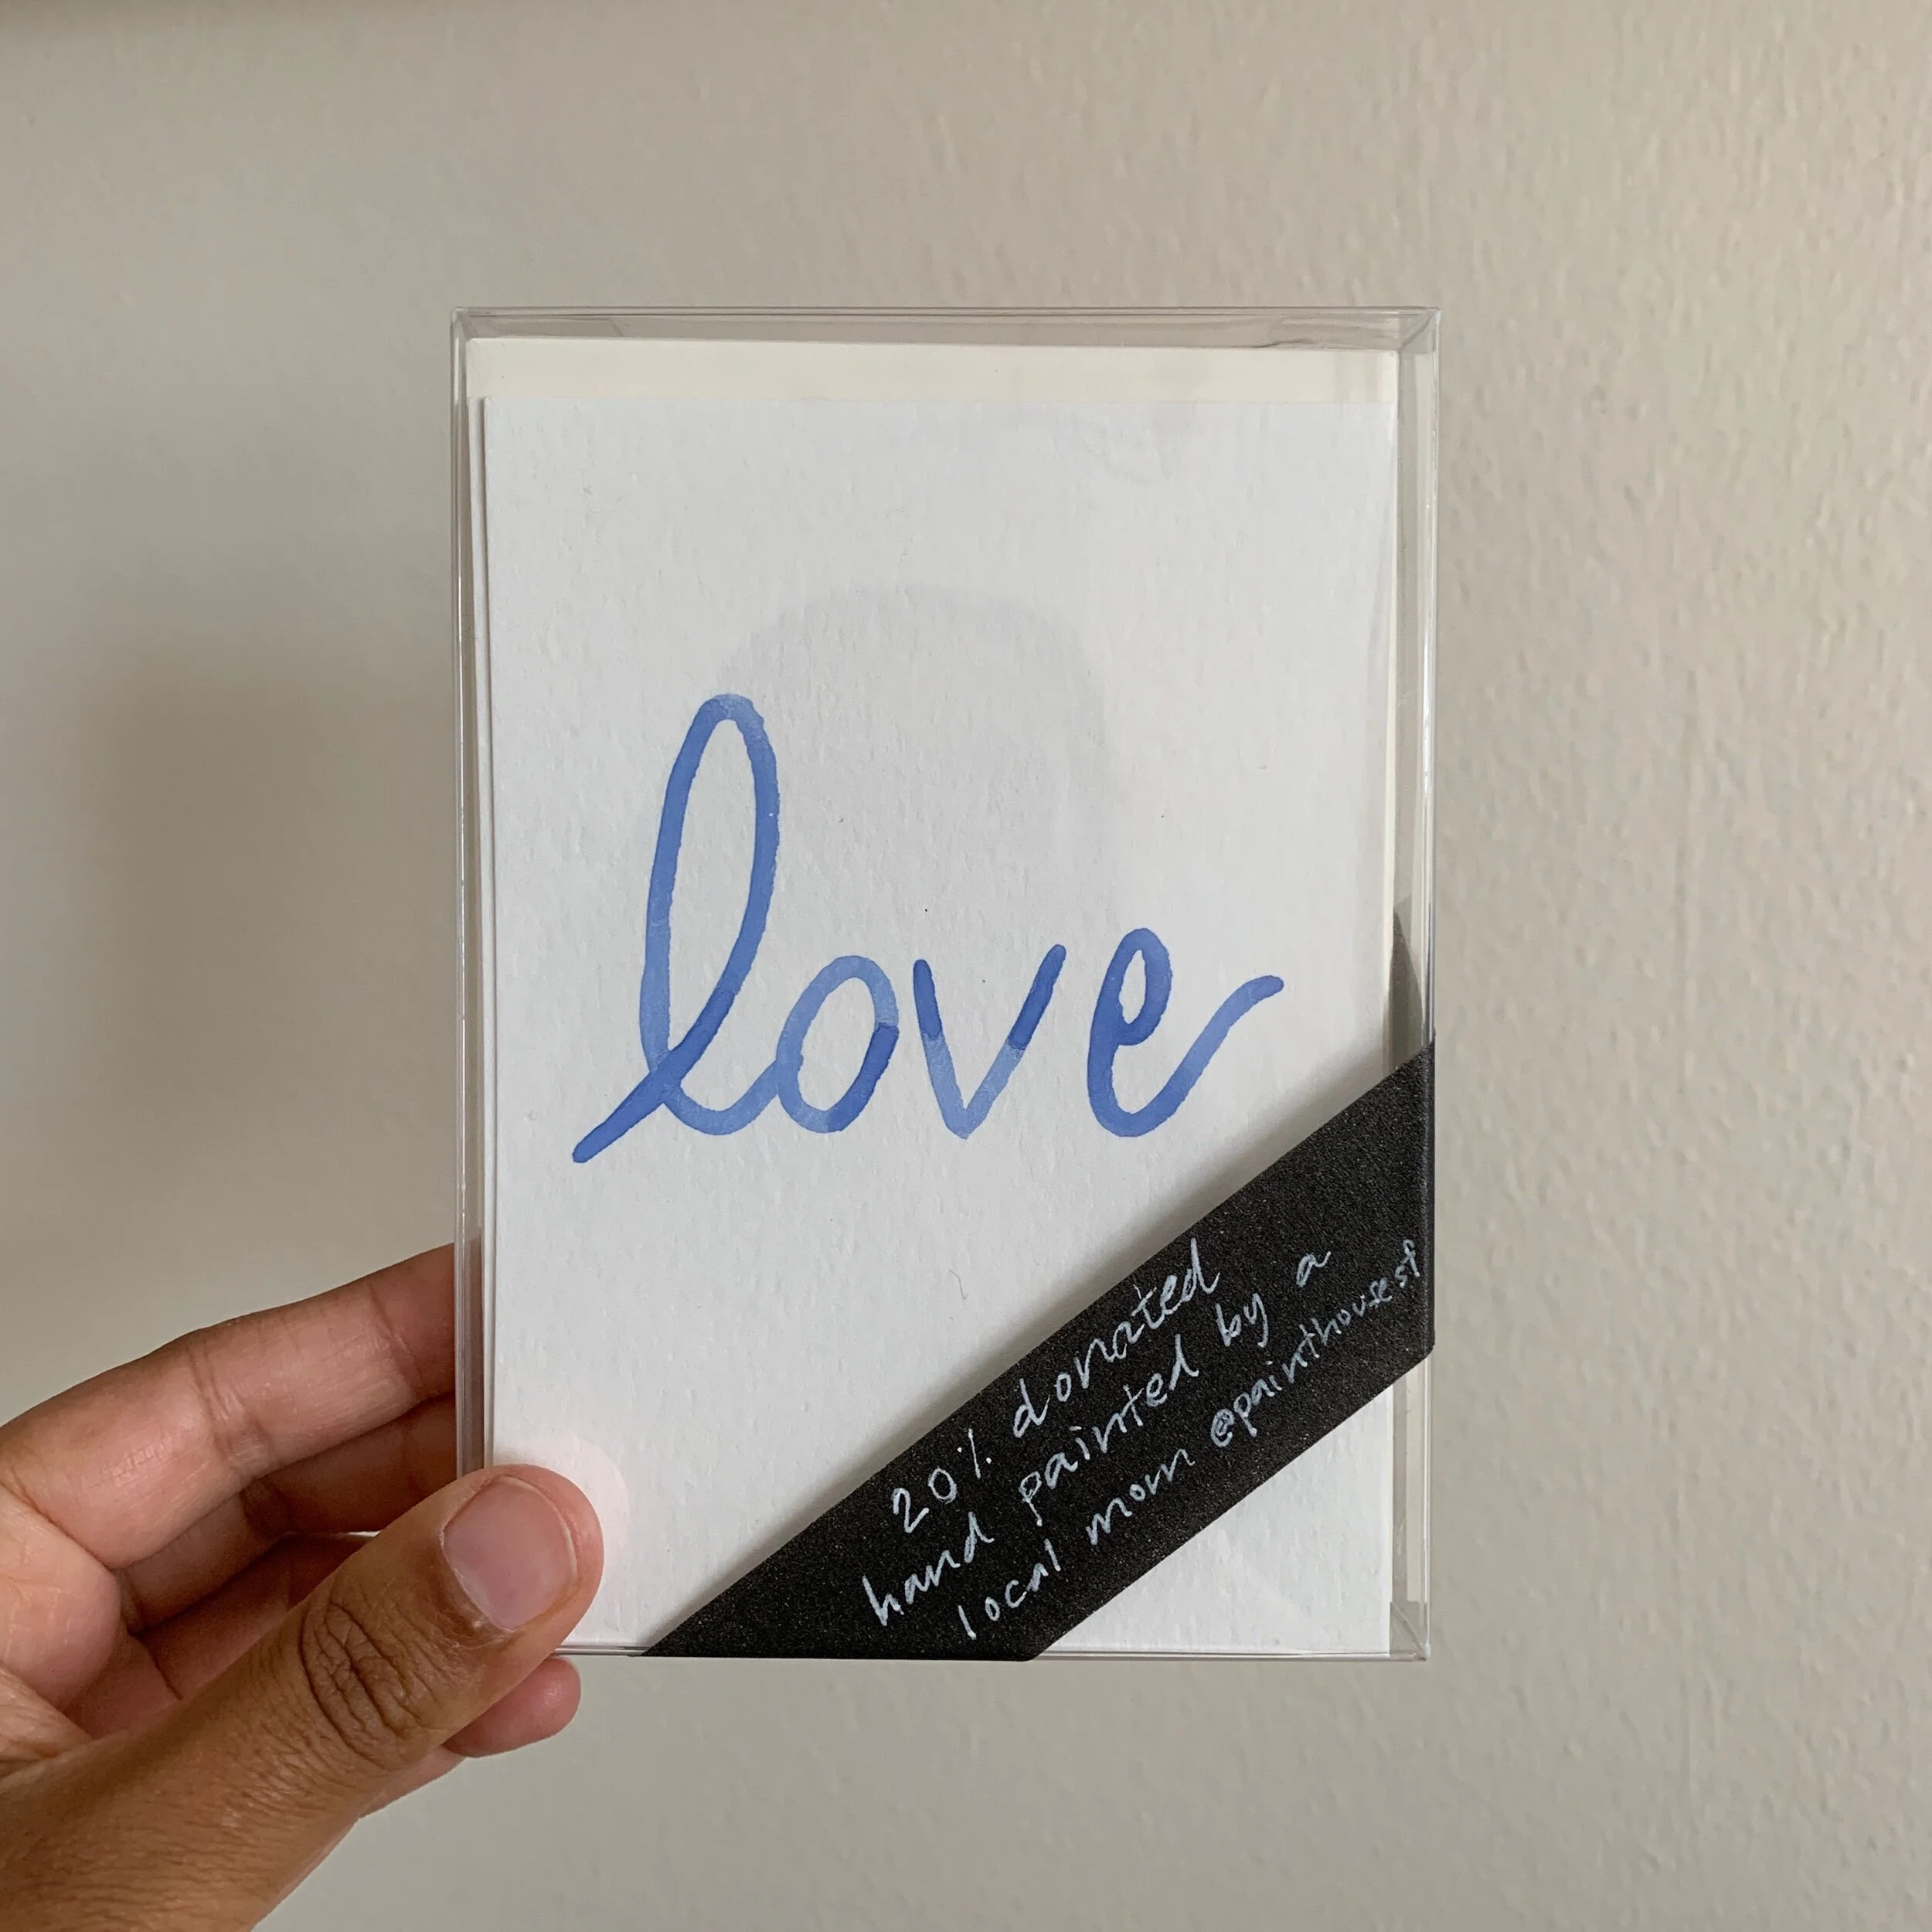 love
20% donated
hand painted by a
local mom @painthousesf